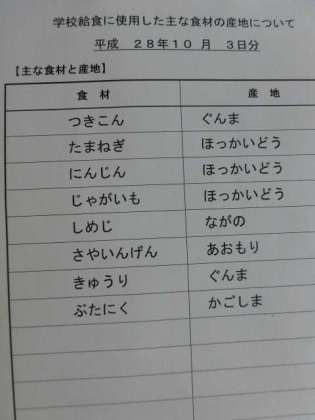 学校給食に使用した主な食材の産地について
平成 28年10月 3日分
【主な食材と産地】
食材 産地
つきこん ぐんま
たまねぎ ほっかいどう
にんじん ほっかいどう
じゃがいも ほっかいどう
しめじ ながの
さやいんげん あおもり
きゅうり ぐんま
ぶたにく かごしま